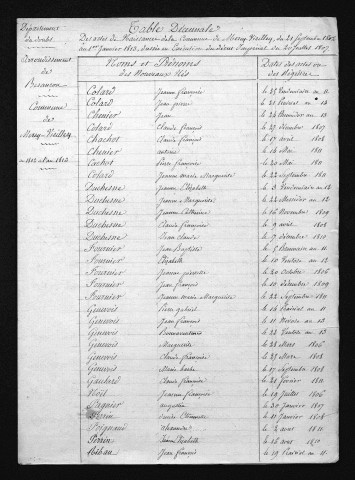 Département du doubs
Arrondissement de Besançon
Commune de
Table Décennale
Des actes de Naissance de la Commune de Mercy Vieilley, du 24 Septembre 1802
au 1er Janvier 1813, dressée en Exécution du décret Impérial du 20 Juillet 1807.
Noms et Prénoms des Nouveaux Nés
Dates des actes ou des Registres
Colard Jeanne françoise le 25 Vendemiaire an 11
Colard Jean pierre an 13
Chenier Jean an 13
Colard Claude francois le 27 decembre 1807
Chachot Jean francois le 17 avril 1808
Chenier antoine le 14 Mai 1811
Cachot Pierre françoise le 20 Mai 1811
Colard Jeanne marie Marguerite le 22 septembre 1811
Duchesne Jeanne Elizabeth le 3 Vendemiaire an 12
Duchesne Jeanne Marguerite le 22 Messidor an 12
Duchesne Jeanne Catherine le 16 Novembre 1809
Duchesne Claude françoise le 9 avril 1808
Duchesne Jean claude le 9 décembre 1810
Fournier Jean Baptiste le 5 Brumaire an 11
Fournier Elizabeth le 10 Ventose an 12
Fournier Jeanne pierrette le 20 octobre 1806
Fournier Jean francois le 10 décembre 1809
Fournier Jeanne marie Marguerite le 22 septembre 1811
Genevois Pierre gabriel le 14 Prairial an 11
Genevois Jean francois an 13
Genevois Bonnaventure le 22 Ventose an 13
Genevois Marguerite le 28 Mars 1806
Genevois Claude françoise le 25 Mars 1808
Genevois Marie barbe le 27 septembre 1808
Gaulard Claude françoise le 21 fevrier 1811
Jeanne françoise le 19 Juillet 1806
augustin le 30 Janvier 1807
le 31 Janvier 1808
1811
Perrin Jeanne Elizabeth le 16 avril 1810
Jean francois le 19 Prairial an 11